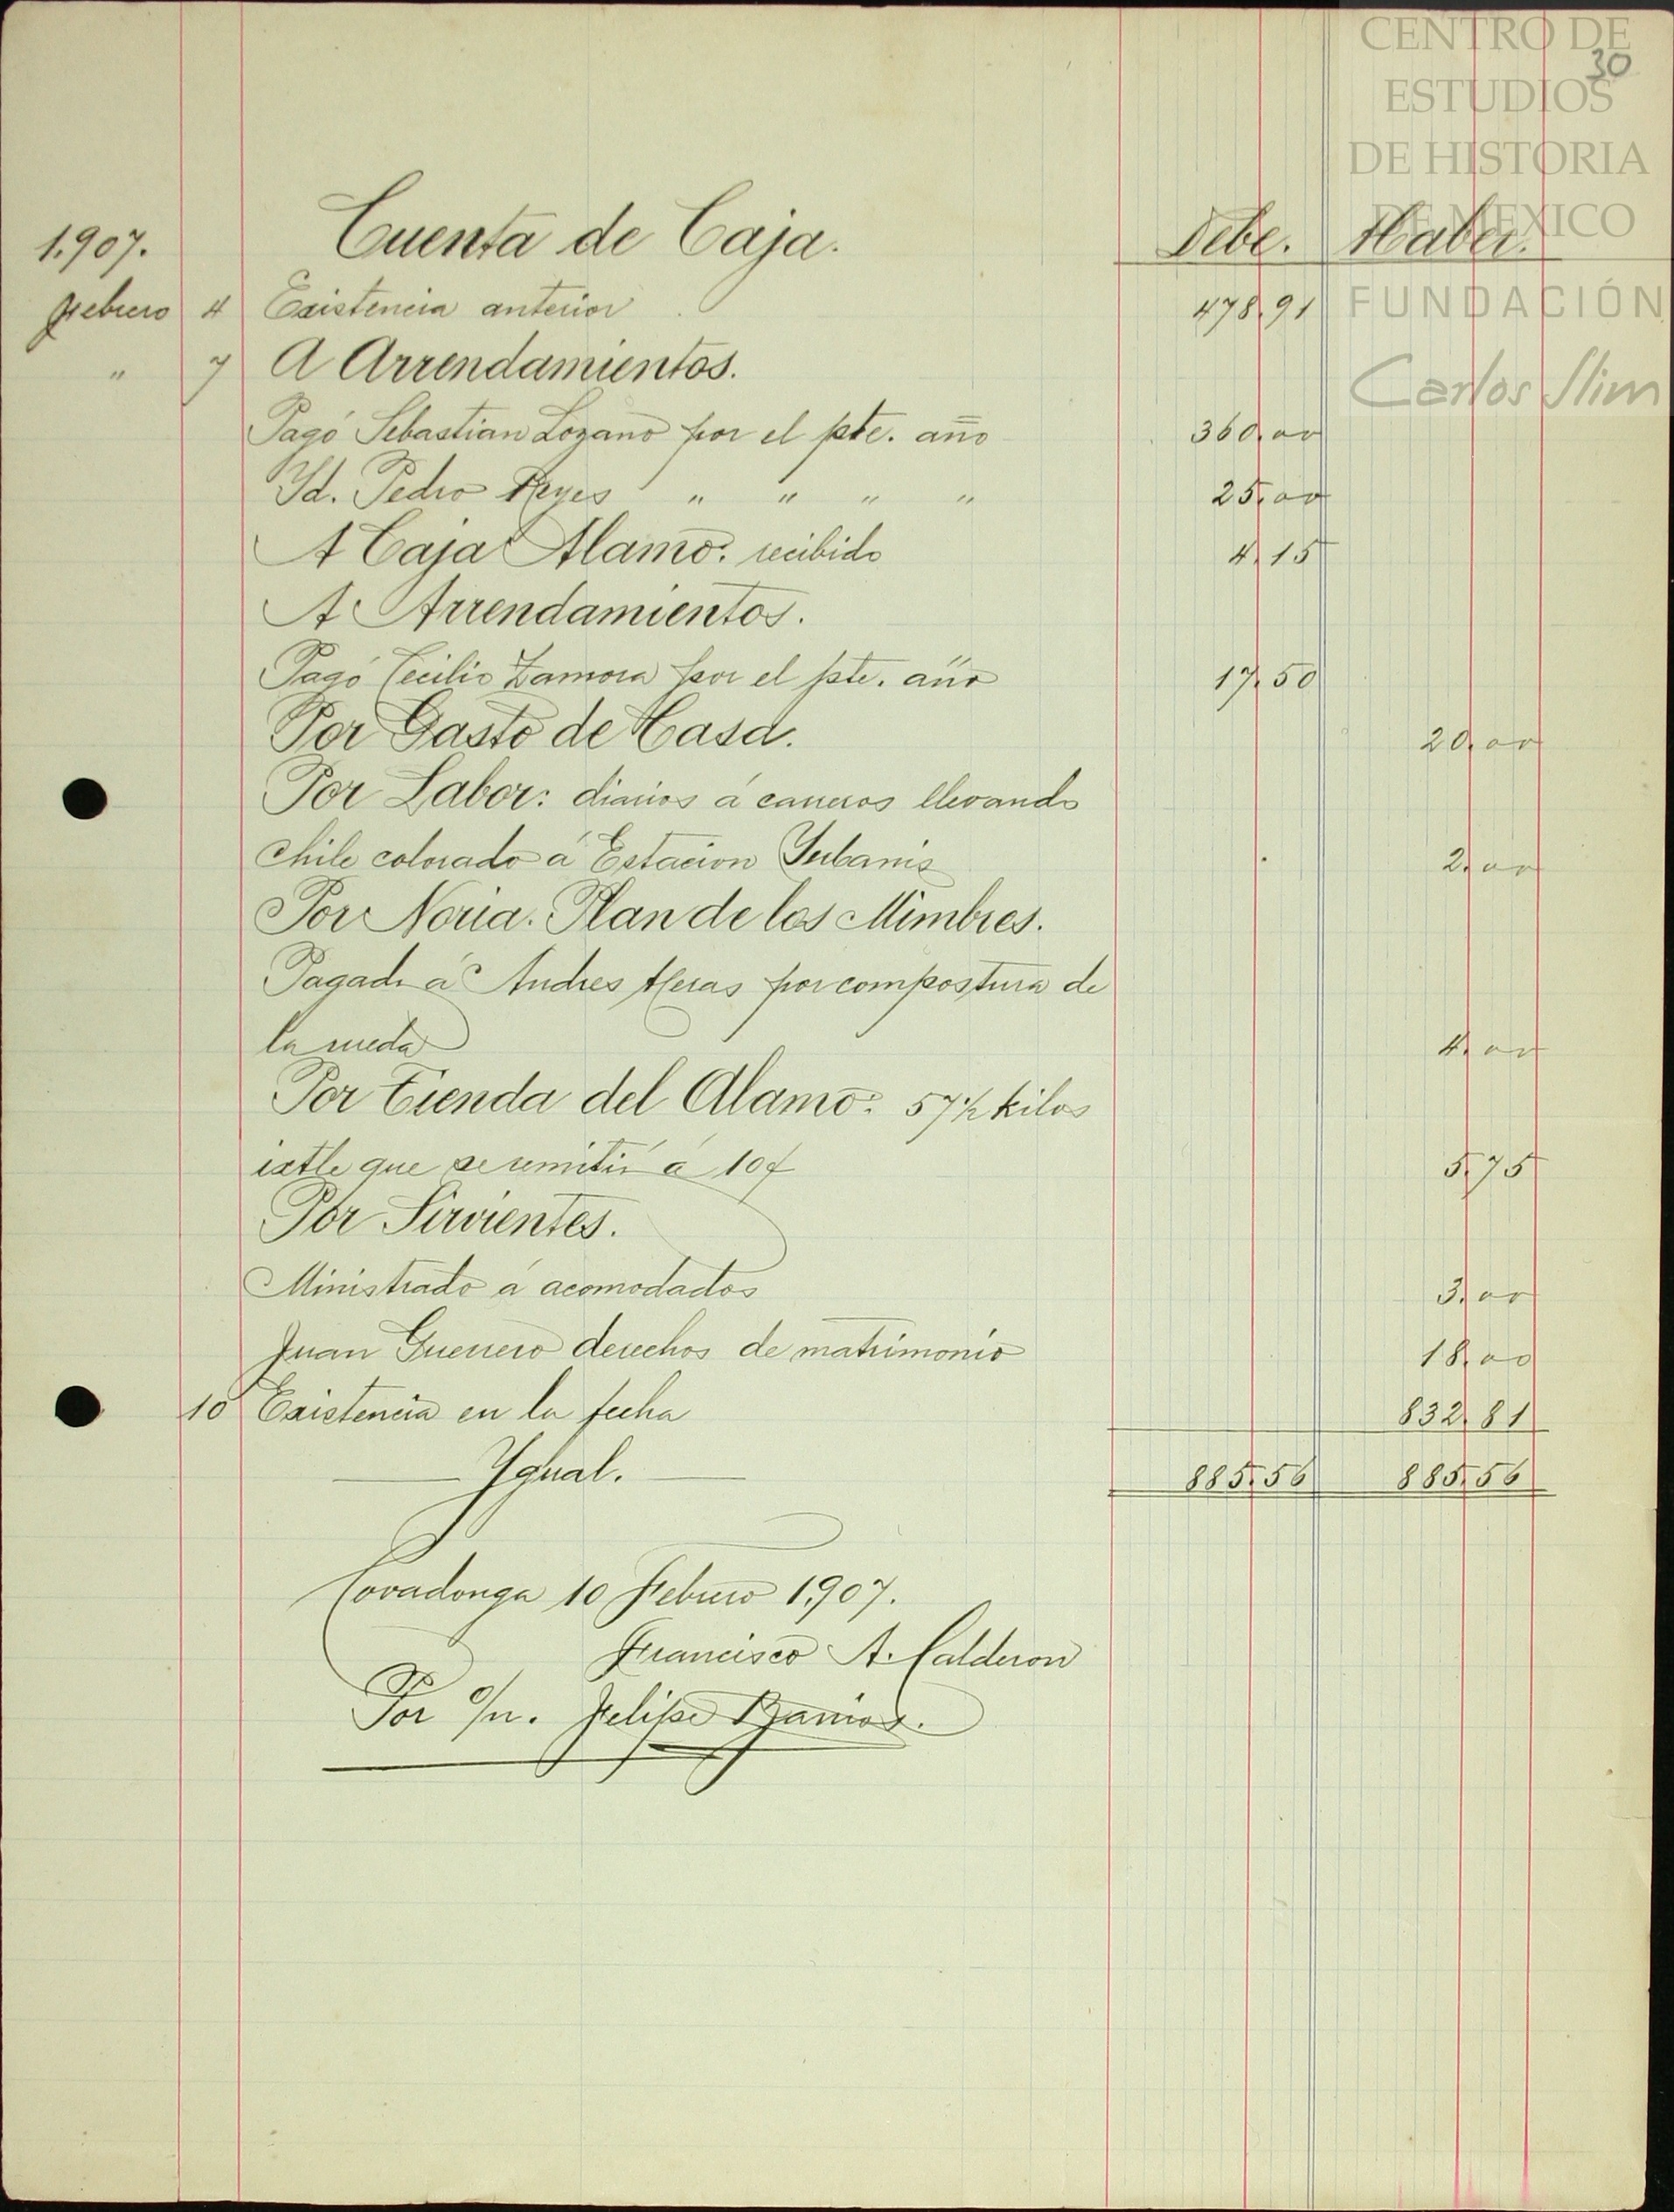 CENTRO DE
30
ESTUDIOS
DE HISTORIA
DE MEXICO
FUNDACIÓN
Carlos Slim
1.907. Cuenta de Caja. Debe. Haber.
Febrero 4 Existencia anterior 478,91
" 7 A Arrendamientos.
Pagó Sebastian Lozano por el pte. año 360,00
Yd. Pedro Reyes " " " " 25,00
A Caja Alamo: recibido 4,15
A Arrendamientos.
Pagó Cecilio Zamora por el pte. año 17,50
Por Gasto de Casa. 20,00
Por Labor: diarios á carreros llevando
chile colorado á Estacion 2,00
Por Noria. Plan de los Mimbres.
Pagado á Andres Heras por compostura de
la rueda 4,00
Por Tienda del Alamo: 57½ kilos
ixtle que se remitió á 10¢ 5,75
Por Sirvientes.
Ministrado á acomodados 3,00
Juan Guerrero derechos de matrimonio 18,00
10 Existencia en la fecha 832,81
Ygual. 885,56 885,56
Covadonga 10 Febrero 1.907.
Francisco A. Calderon
Por o/n. Felipe Ramos.